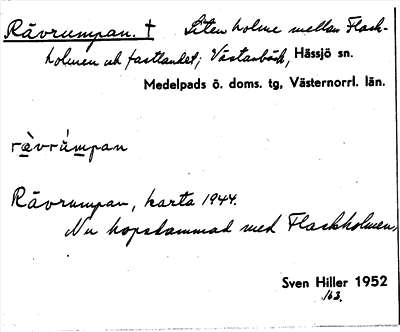 Rävrumpan. † Liten holme mellan Flask-
holmen och fastlandet; Västanbäck, Hässjö sn.
Medelpads ö. doms. tg, Västernorrl. län.
ràvrúmpan
Rävrumpan, karta 1944.
Nu hopdammad med Flaskholmen.
Sven Hiller 1952
163.